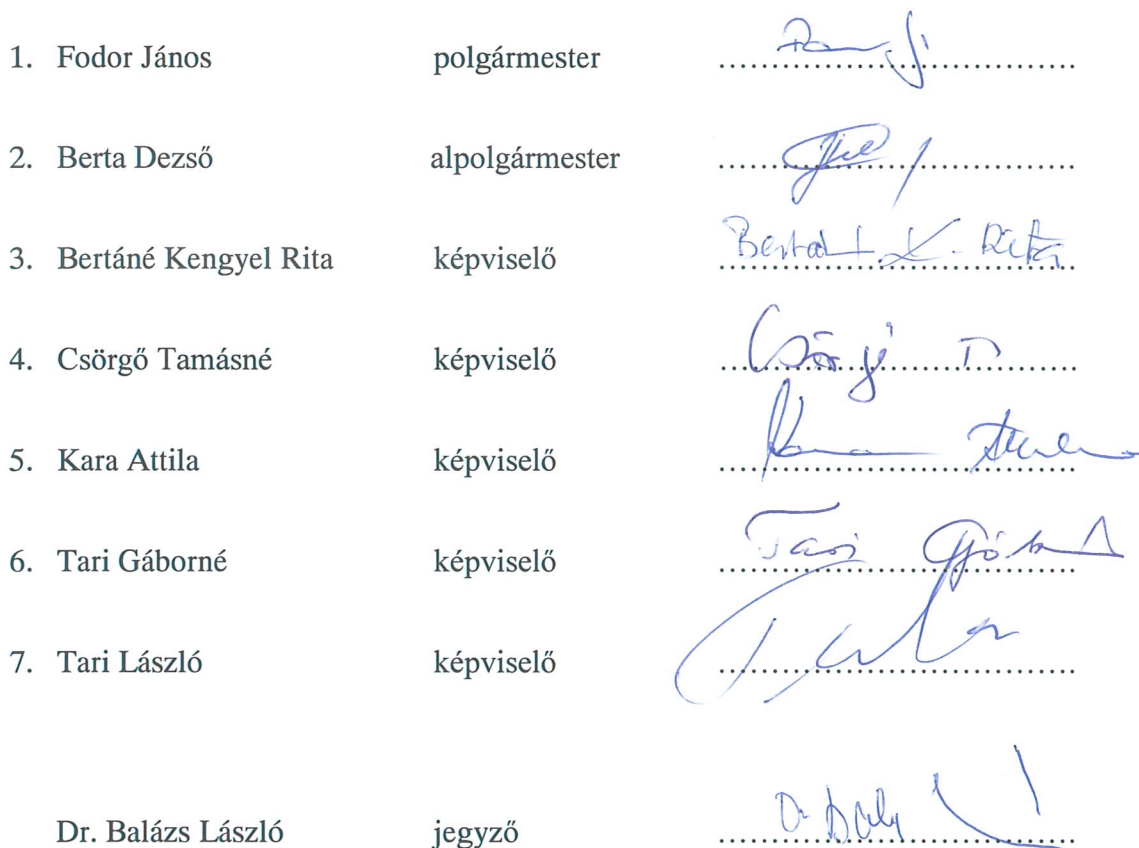 1. Fodor János polgármester ..............................
2. Berta Dezső alpolgármester ..............................
3. Bertáné Kengyel Rita képviselő Bertáné K. Rita
4. Csörgő Tamásné képviselő Csörgő T
5. Kara Attila képviselő Kara Attila
6. Tari Gáborné képviselő Tari Gáborné
7. Tari László képviselő ..............................
Dr. Balázs László jegyző Dr Balázs